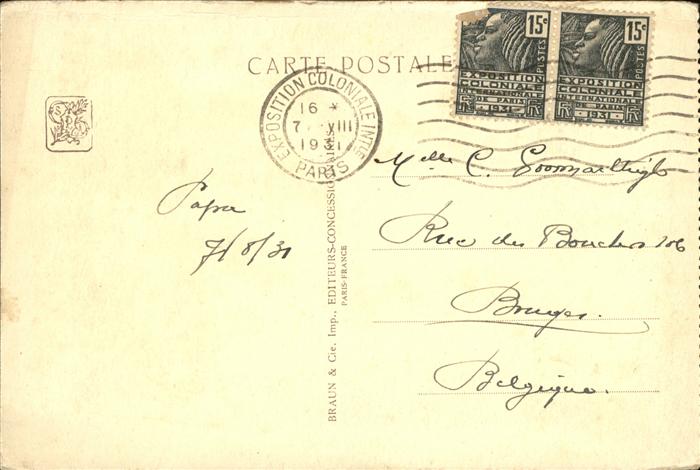 CARTE POSTALE
15c
POSTES
EXPOSITION
COLONIALE
INTERNATIONALE
DE PARIS
1931
RF
15c
POSTES
EXPOSITION
COLONIALE
INTERNATIONALE
DE PARIS
1931
RF
EXPOSITION COLONIALE INTLE
16 *
7 VIII
1931
PARIS
Papa
7/8/31
Melle C.
Rue des Bouchers 106
Bruges.
Belgique.
BRAUN & Cie. Imp., EDITEURS-CONCESSIONNAIRES
PARIS-FRANCE